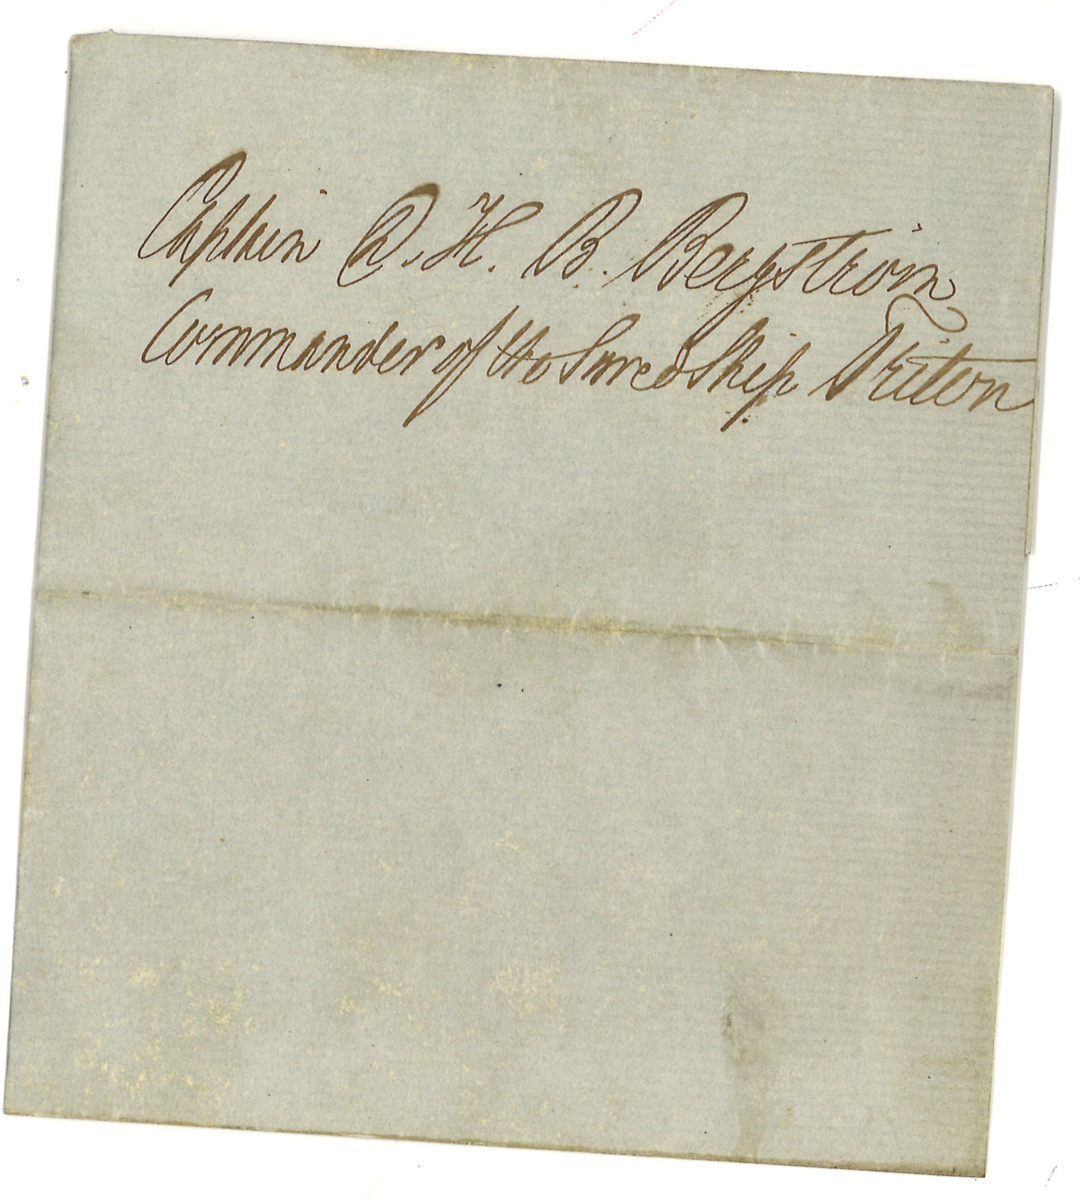 Captain O. H. B. Bergström
Commander of the Swed Ship Triton